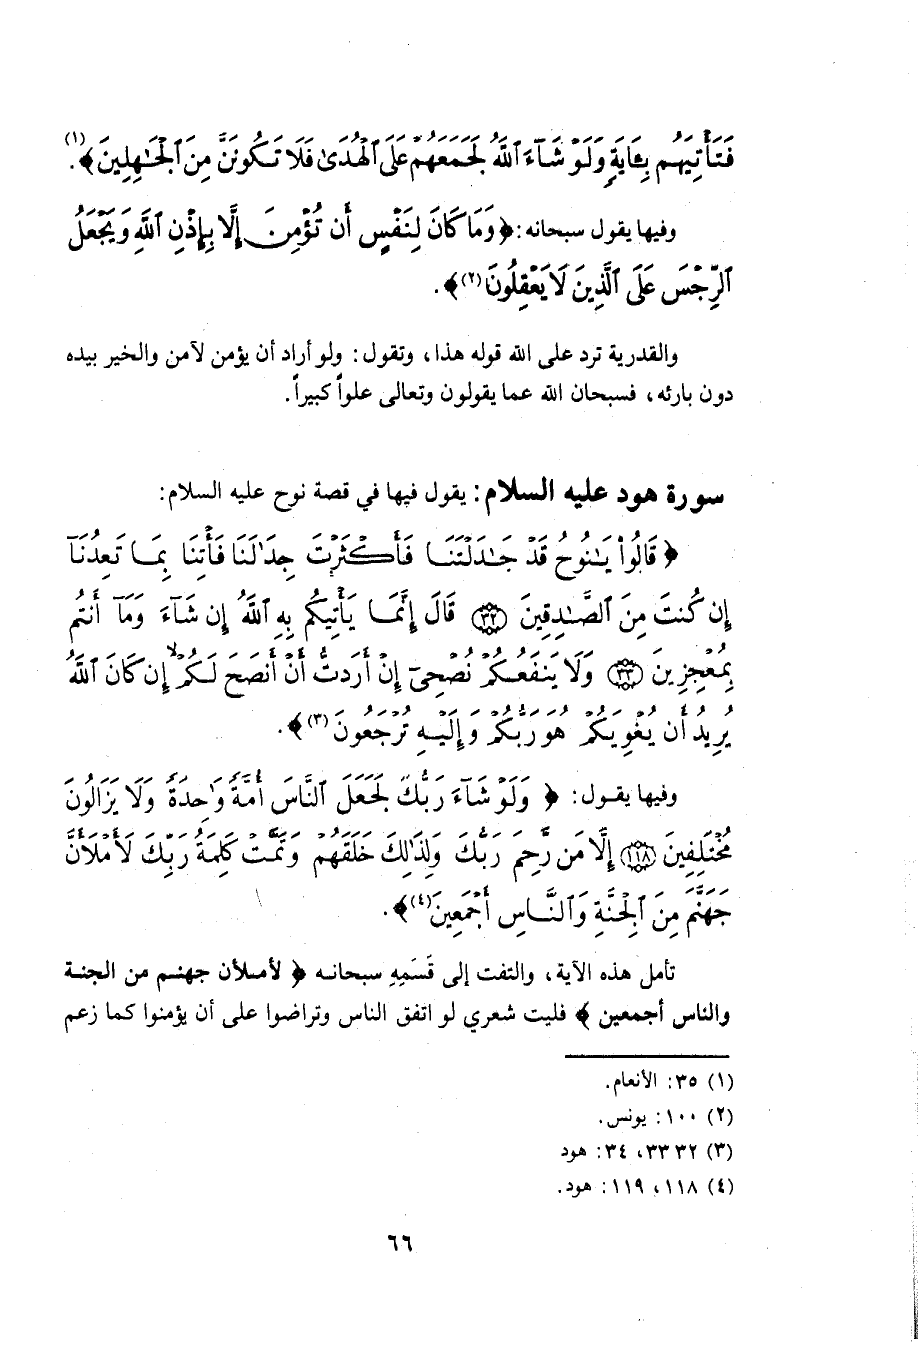 فَتَأْتِيَهُم بِـَٔايَةٍ وَلَوْ شَآءَ ٱللَّهُ لَجَمَعَهُمْ عَلَى ٱلْهُدَىٰ فَلَا تَكُونَنَّ مِنَ ٱلْجَٰهِلِينَ﴾(١).
وفيها يقول سبحانه: ﴿وَمَا كَانَ لِنَفْسٍ أَن تُؤْمِنَ إِلَّا بِإِذْنِ ٱللَّهِ وَيَجْعَلُ
ٱلرِّجْسَ عَلَى ٱلَّذِينَ لَا يَعْقِلُونَ(٢)﴾.
والقدرية ترد على الله قوله هذا، وتقول: ولو أراد أن يؤمن لآمن والخير بيده
دون بارئه، فسبحان الله عما يقولون وتعالى علواً كبيراً.
سورة هود عليه السلام: يقول فيها في قصة نوح عليه السلام:
﴿قَالُوا۟ يَٰنُوحُ قَدْ جَٰدَلْتَنَا فَأَكْثَرْتَ جِدَٰلَنَا فَأْتِنَا بِمَا تَعِدُنَآ
إِن كُنتَ مِنَ ٱلصَّٰدِقِينَ ٣٢ قَالَ إِنَّمَا يَأْتِيكُم بِهِ ٱللَّهُ إِن شَآءَ وَمَآ أَنتُم
بِمُعْجِزِينَ ٣٣ وَلَا يَنفَعُكُمْ نُصْحِىٓ إِنْ أَرَدتُّ أَنْ أَنصَحَ لَكُمْ إِن كَانَ ٱللَّهُ
يُرِيدُ أَن يُغْوِيَكُمْ هُوَ رَبُّكُمْ وَإِلَيْهِ تُرْجَعُونَ(٣)﴾.
وفيها يقول: ﴿وَلَوْ شَآءَ رَبُّكَ لَجَعَلَ ٱلنَّاسَ أُمَّةً وَٰحِدَةً وَلَا يَزَالُونَ
مُخْتَلِفِينَ ١١٨ إِلَّا مَن رَّحِمَ رَبُّكَ وَلِذَٰلِكَ خَلَقَهُمْ وَتَمَّتْ كَلِمَةُ رَبِّكَ لَأَمْلَأَنَّ
جَهَنَّمَ مِنَ ٱلْجِنَّةِ وَٱلنَّاسِ أَجْمَعِينَ(٤)﴾.
تأمل هذه الآية، والتفت إلى قَسَمِهِ سبحانه ﴿لأملأن جهنم من الجنة
والناس أجمعين﴾ فليت شعري لو اتفق الناس وتراضوا على أن يؤمنوا كما زعم
(١) ٣٥: الأنعام.
(٢) ١٠٠: يونس.
(٣) ٣٢ ٣٣، ٣٤: هود
(٤) ١١٨، ١١٩: هود.
٦٦